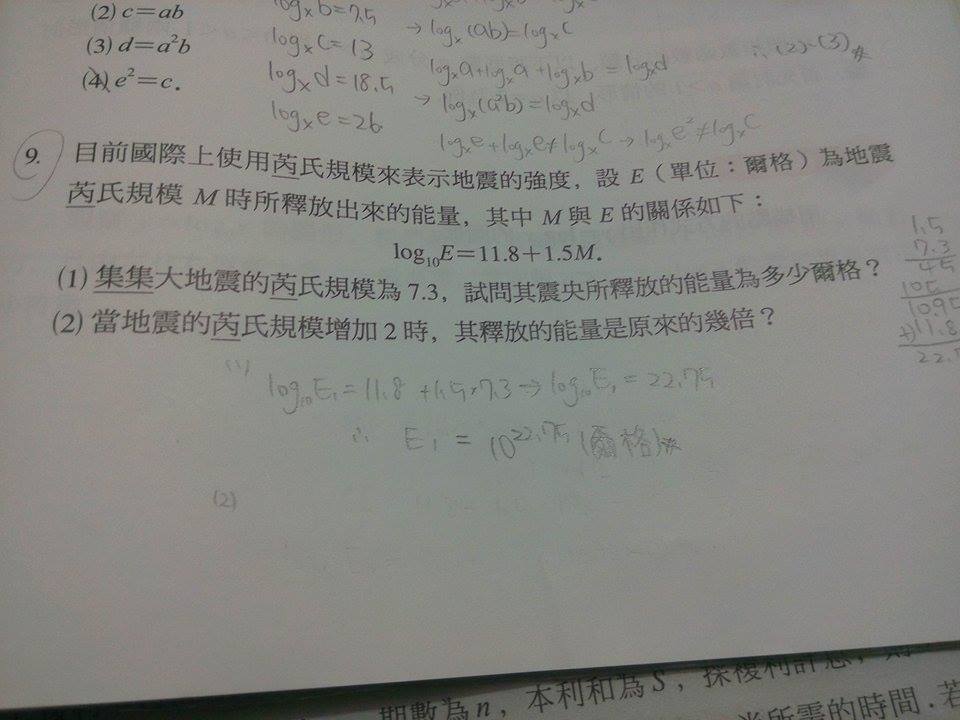 (2) c=ab
log_x b=7.5
→log_x(ab)=log_x c
(3) d=a²b
log_x c=13
log_x a+log_x a+log_x b=log_x d
∴(2)、(3)
(4) e²=c.
log_x d=18.5
→log_x(a²b)=log_x d
log_x e=26
log_x e+log_x e≠log_x c→log_x e²≠log_x c
9. 目前國際上使用芮氏規模來表示地震的強度，設 E（單位：爾格）為地震
芮氏規模 M 時所釋放出來的能量，其中 M 與 E 的關係如下：
log₁₀E=11.8+1.5M.
(1) 集集大地震的芮氏規模為 7.3，試問其震央所釋放的能量為多少爾格？
(2) 當地震的芮氏規模增加 2 時，其釋放的能量是原來的幾倍？
1.5
7.3
45
105
10.95
+)11.8
22.7
(1)
log₁₀E₁=11.8+1.5×7.3→log₁₀E₁=22.75
∴ E₁=10^22.75(爾格)
(2)
期數為 n，本利和為 S，採複利計息，
所需的時間．若